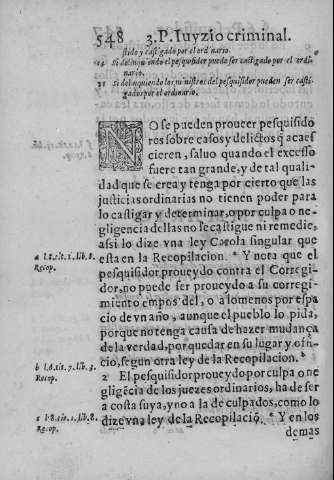 548 3.P. Iuyzio criminal.
stido y castigado por el ordinario
24 Si delinquiendo el pesquisidor puede ser castigado por el ordi-
nario.
25 Si delinquiendo los ministros del pesquisidor pueden ser casti-
gados por el ordinario.
NO se pueden proueer pesquisido
res sobre casos y delictos q̃ acaes
cieren, saluo quando el excesso
fuere tan grande, y de tal quali-
dad que se crea y tenga por cierto que las
justicias ordinarias no tienen poder para
lo castigar y determinar, o por culpa o ne-
gligencia dellas no se castigue ni remedie,
assi lo dize vna ley Carola singular que
a l.8.tit.1.lib.8.
Recop.
esta en la Recopilacion. a Y nota que el
pesquisidor proueydo contra el Corregi-
dor, no puede ser proueydo a su corregi-
miento empos del, o a lomenos por espa
cio de vn año, aunque el pueblo lo pida,
porque no tenga causa de hazer mudança
de la verdad, por quedar en su lugar y ofi-
b l.4.tit.7.lib.3.
Recop.
cio, segun otra ley de la Recopilacion. b
2 El pesquisidor proueydo por culpa o ne
gligẽcia de los juezes ordinarios, ha de ser
a costa suya, y no a la de culpados, como lo
c l.8.tit.1.lib.8.
Recop.
dize vna ley de la Recopilaciõ. c Y en los
demas